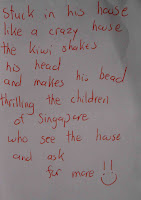 stuck in his house
like a crazy house
the kiwi shakes
his head
and makes his bead
thrilling the children
of Singapore
who see the house
and ask
for more